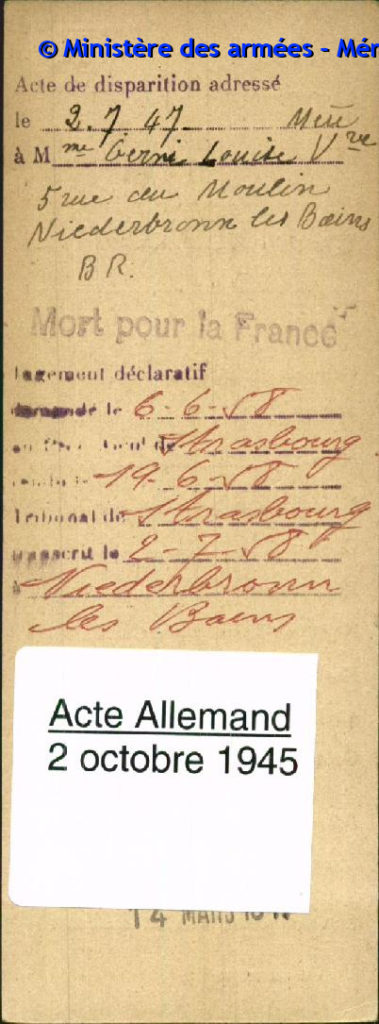 © Ministère des armées - Mém
Acte de disparition adressé
le 2.7.47.
à M me Gerni Louise Vve
5 rue du Moulin
Niederbronn les Bains
B R.
Mort pour la France
Jugement déclaratif
demandé le 6-6-58
Strasbourg
19-6-58
Tribunal de Strasbourg
transcrit le 2-7-58
à Niederbronn
les Bains
Acte Allemand
2 octobre 1945
14 MARS